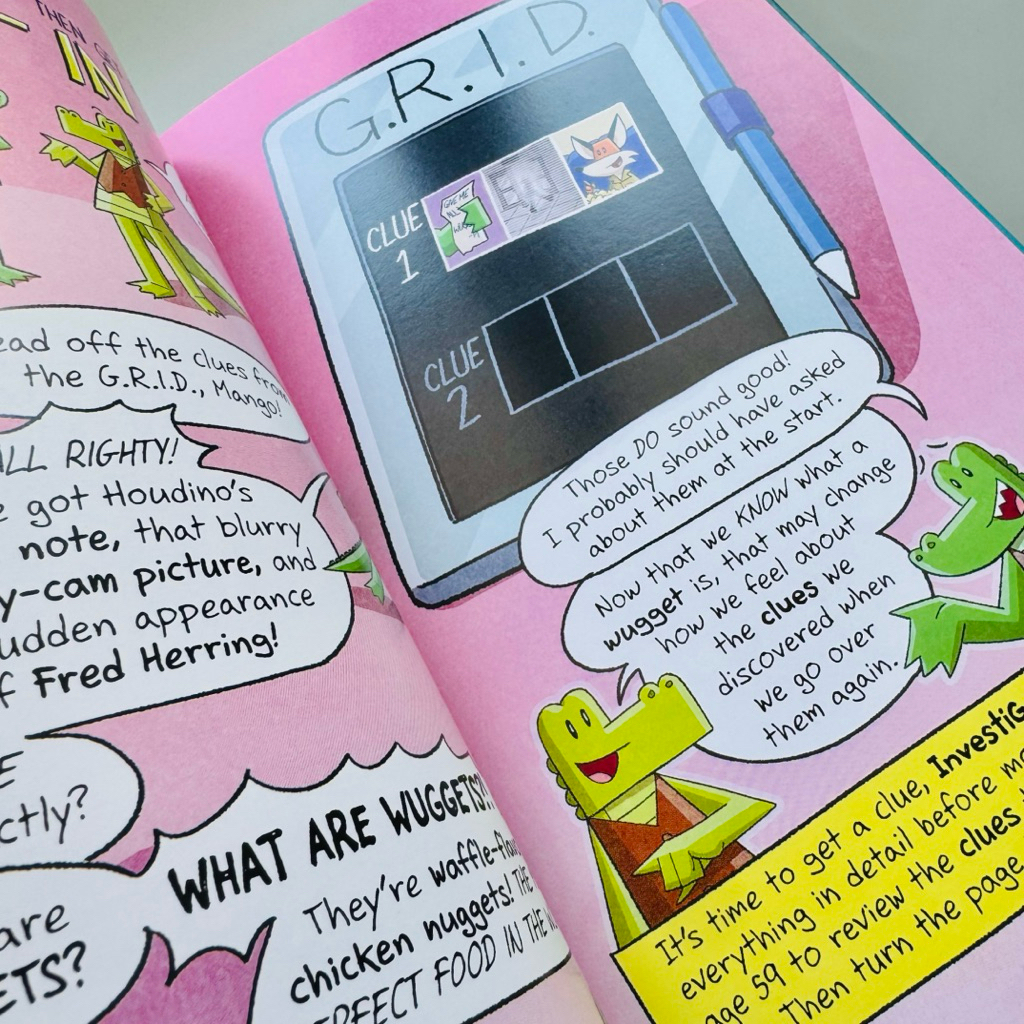 THEN GE
IN
ead off the clues from
the G.R.I.D., Mango!
ALL RIGHTY!
e got Houdino's
note, that blurry
y-cam picture, and
udden appearance
f Fred Herring!
E
ctly?
are
ETS?
WHAT ARE WUGGETS?
They're waffle-fla
chicken nuggets! THE
ERFECT FOOD IN THE W
G.R.I.D.
CLUE
1
GIVE ME
ALL
CLUE
2
Those DO sound good!
I probably should have asked
about them at the start.
Now that we KNOW what a
wugget is, that may change
how we feel about
the clues we
discovered when
we go over
them again.
It's time to get a clue, InvestiG
everything in detail before mo
age 59 to review the clues
Then turn the page